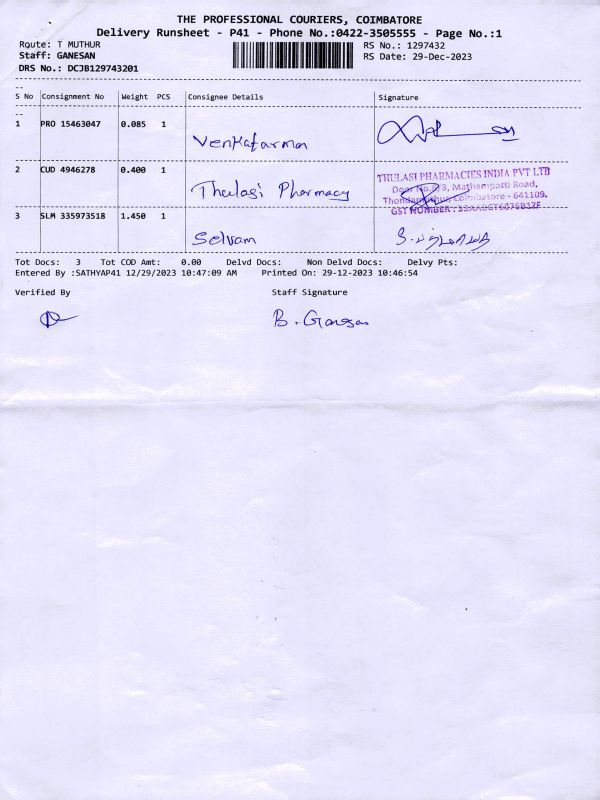 THE PROFESSIONAL COURIERS, COIMBATORE
Delivery Runsheet - P41 - Phone No.:0422-3505555 - Page No.:1
Route: T MUTHUR
RS No.: 1297432
Staff: GANESAN
RS Date: 29-Dec-2023
DRS No.: DCJB129743201
S No Consignment No Weight PCS Consignee Details Signature
1 PRO 15463047 0.085 1 Venkatarman
2 CUD 4946278 0.400 1 Thulasi Pharmacy
THULASI PHARMACIES INDIA PVT LTD
Door No. 8/3, Mathampatti Road,
Coimbatore - 641109.
GST NUMBER :
3 SLM 335973518 1.450 1 Selvam
Tot Docs: 3 Tot COD Amt: 0.00 Delvd Docs: Non Delvd Docs: Delvy Pts:
Entered By :SATHYAP41 12/29/2023 10:47:09 AM Printed On: 29-12-2023 10:46:54
Verified By Staff Signature
B. Ganesan